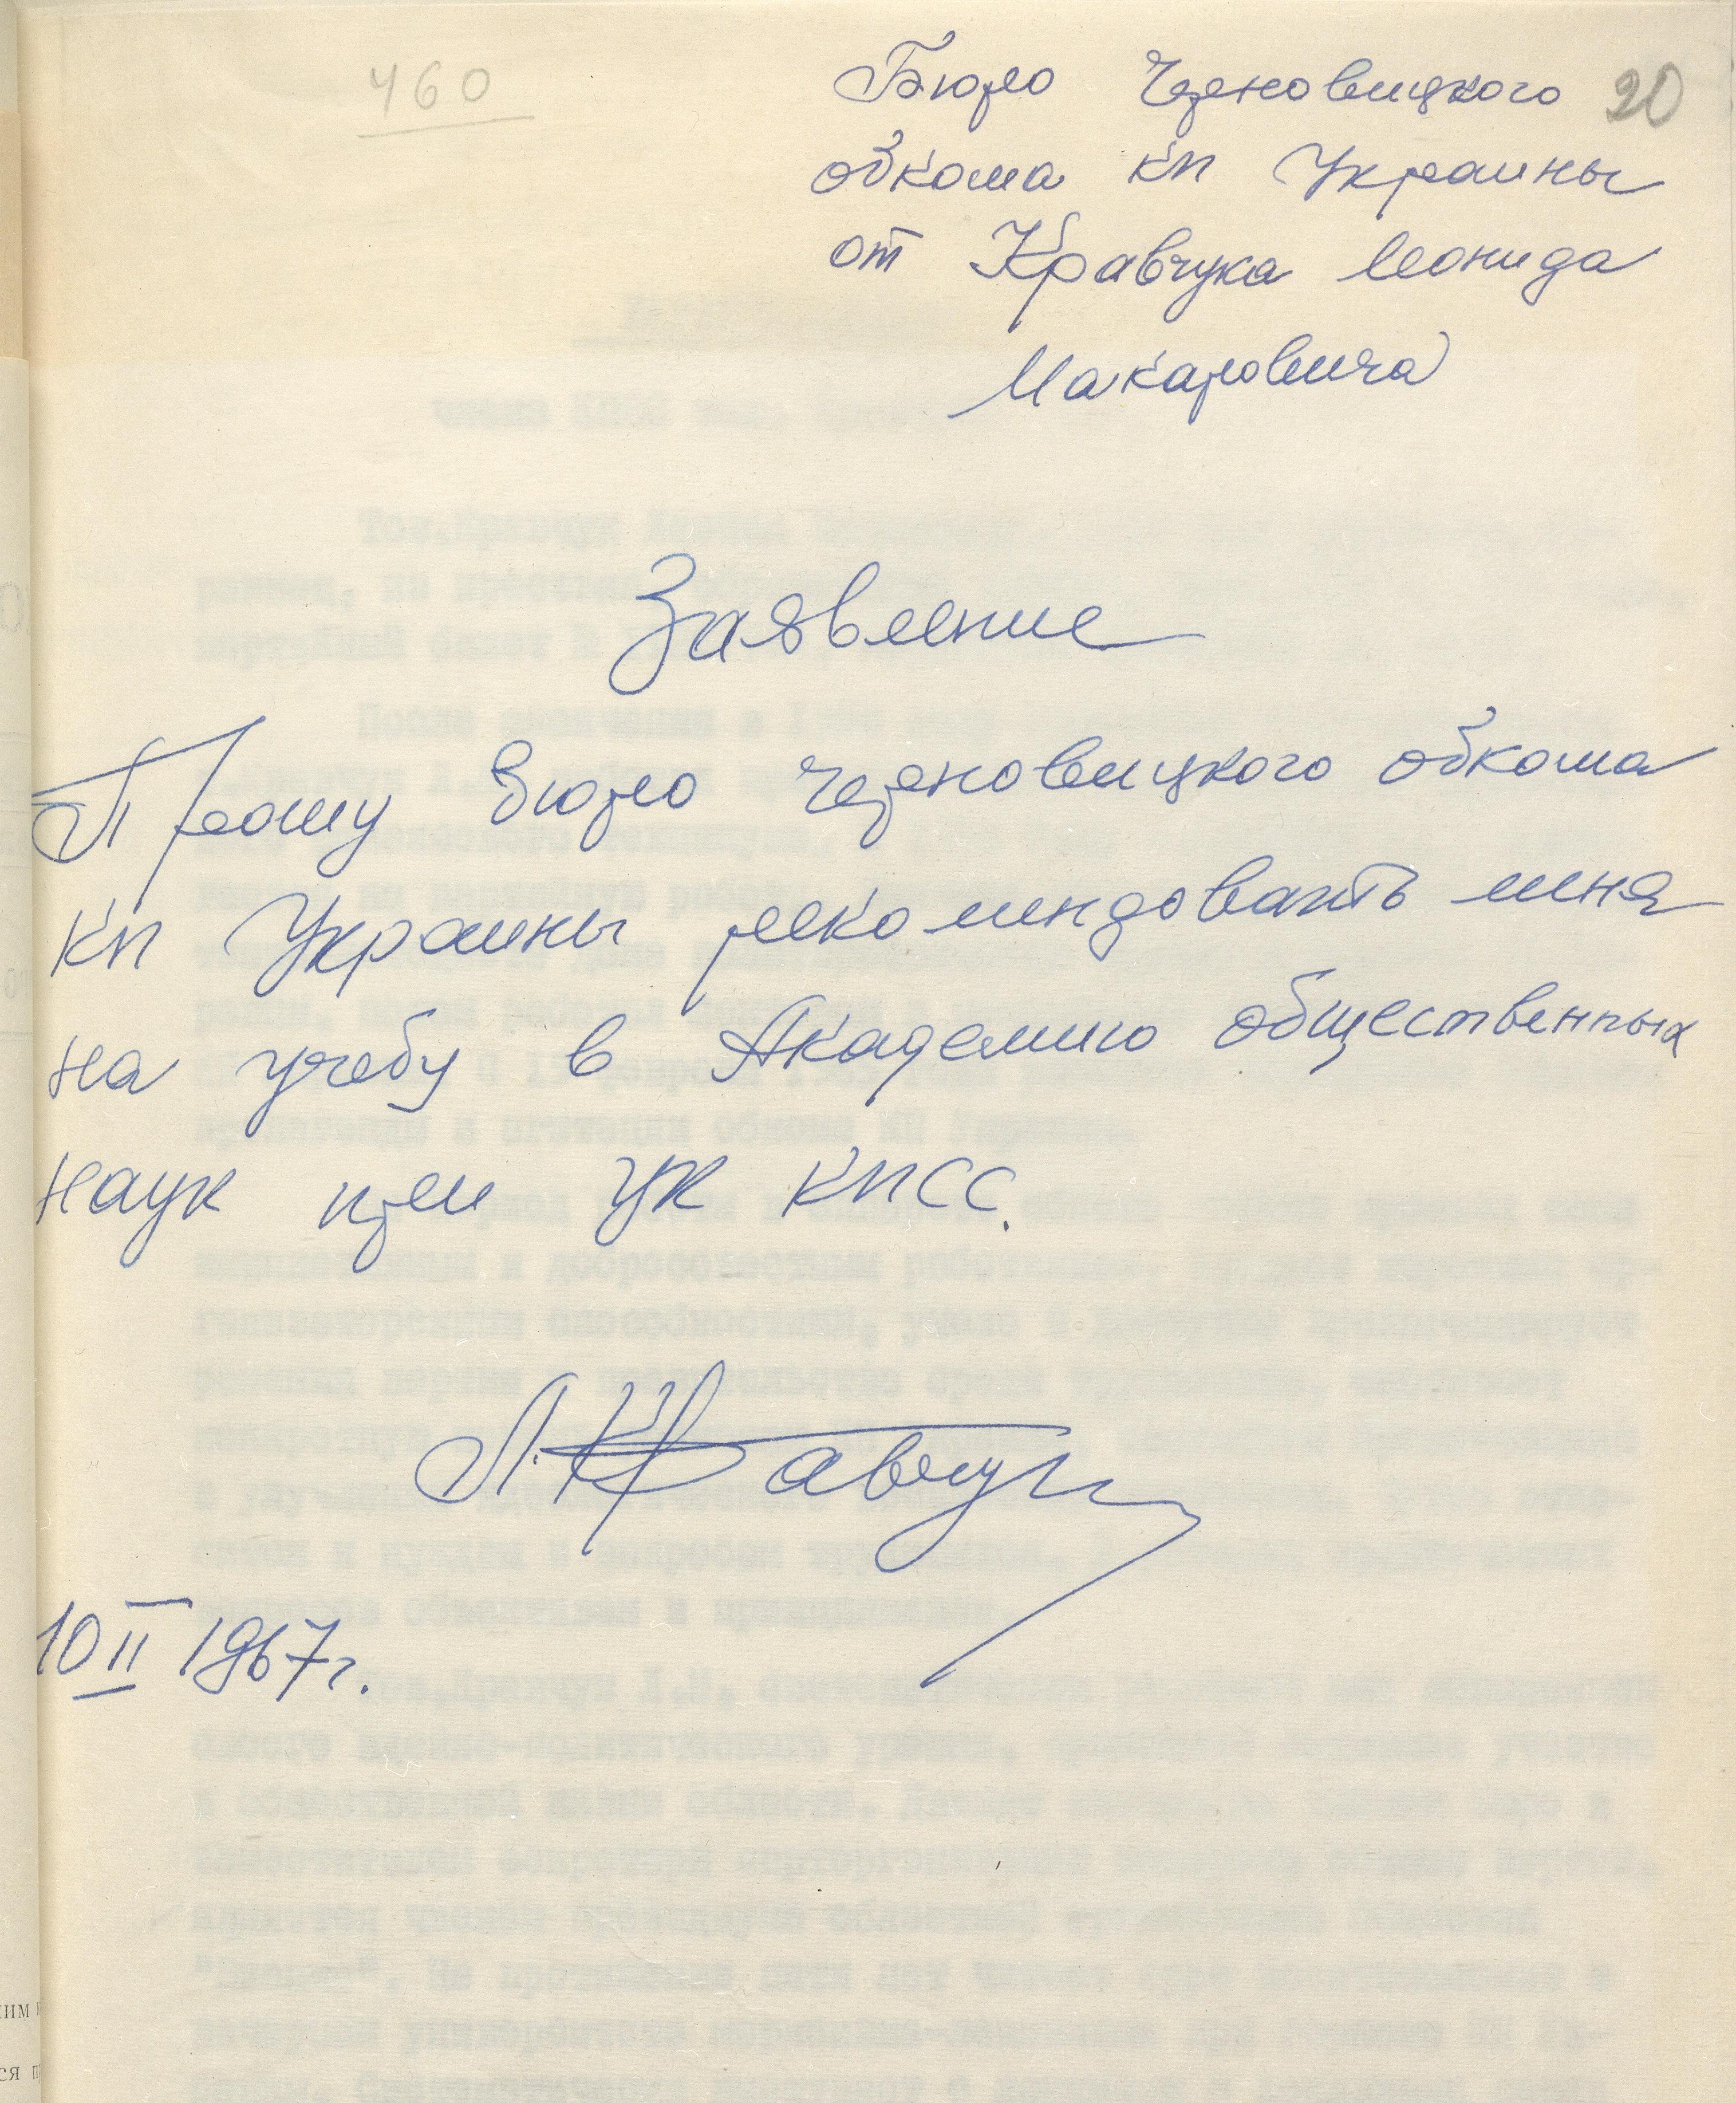 460
Бюро Черновицкого 20
обкома КП Украины
от Кравчука Леонида
Макаровича
Заявление
Прошу бюро Черновицкого обкома
КП Украины рекомендовать меня
на учебу в Академию общественных
наук при ЦК КПСС.
Л. Кравчук
10 II 1967 г.